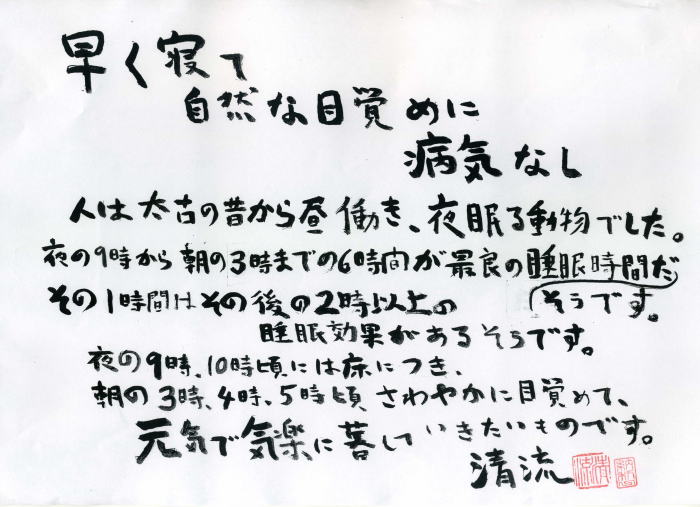 早く寝て
自然な目覚めに
病気なし
人は太古の昔から昼働き、夜眠る動物でした。
夜の9時から朝の3時までの6時間が最良の睡眠時間だ
そうです。
その1時間はその後の2時以上の
睡眠効果があるそうです。
夜の9時、10時頃には床につき、
朝の3時、4時、5時頃さわやかに目覚めて、
元気で気楽に暮していきたいものです。
清流